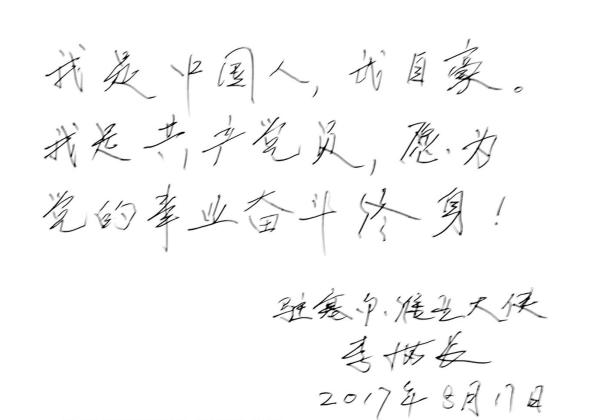 我是中国人，我自豪。
我是共产党员，愿为
党的事业奋斗终身！
驻塞尔维亚大使
李满长
2017年8月17日